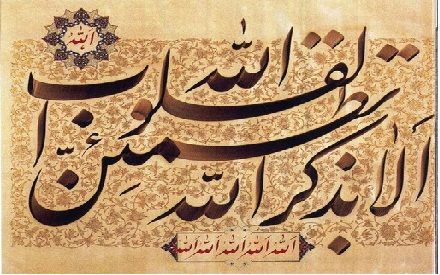 الله
الله
ألا بذكر الله تطمئن القلوب
الله الله الله الله الله